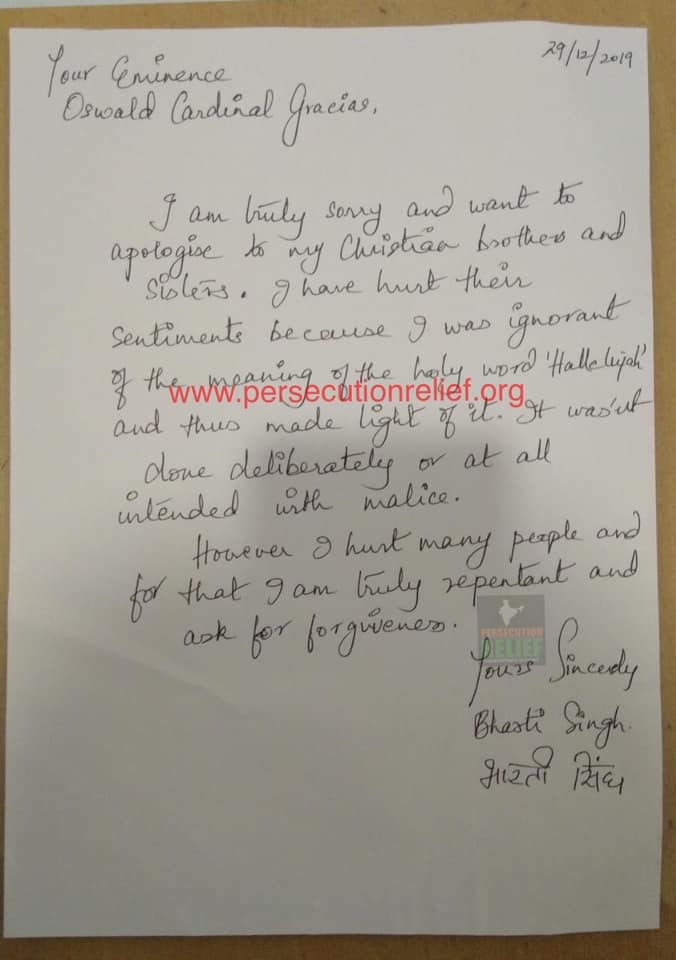 29/12/2019
Your Eminence
Oswald Cardinal Gracias,
I am truly sorry and want to
apologise to my Christian brothers and
Sisters. I have hurt their
sentiments because I was ignorant
of the meaning of the holy word 'Hallelujah'
www.persecutionrelief.org
and thus made light of it. It was'nt
done deliberately or at all
intended with malice.
However I hurt many people and
for that I am truly repentant and
ask for forgiveness.
PERSECUTION
RELIEF
Yours Sincerely
Bharti Singh.
भारती सिंघ